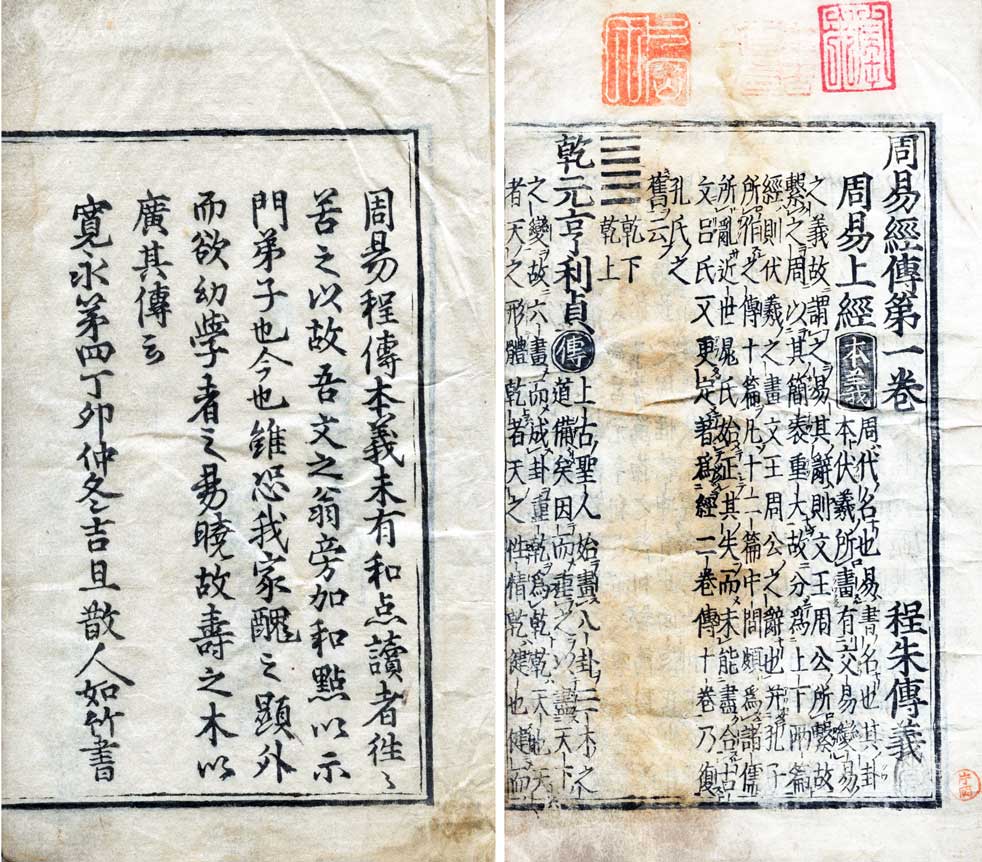 周易經傳第一卷 程朱傳義
周易上經 本義 周代名也易書名也其卦
本伏羲所畫有交易變易
之義故謂之易其辭則文王周公所繫故
繫之周以其簡袠重大故分爲上下兩篇
經則伏羲之畫文王周公之辭也并孔子
所作之傳十篇凡十二篇中間頗爲諸儒
所亂近世晁氏始正其失而未能盡合古
文呂氏又更定著爲經二卷傳十卷乃復
孔氏之
舊云
乾下
乾上
乾元亨利貞 傳 上古聖人始畫八卦三才之
道備矣因而重之以盡天下
之變故六畫而成卦重乾爲乾乾天也天
者天之形體乾者天之性情乾健也健而
周易程傳本義未有和点讀者徃〻
苦之以故吾文之翁旁加和點以示
門弟子也今也雖恐我家醜之顕外
而欲幼學者之易曉故壽之木以
廣其傳云
寛永第四丁卯仲冬吉旦散人如竹書